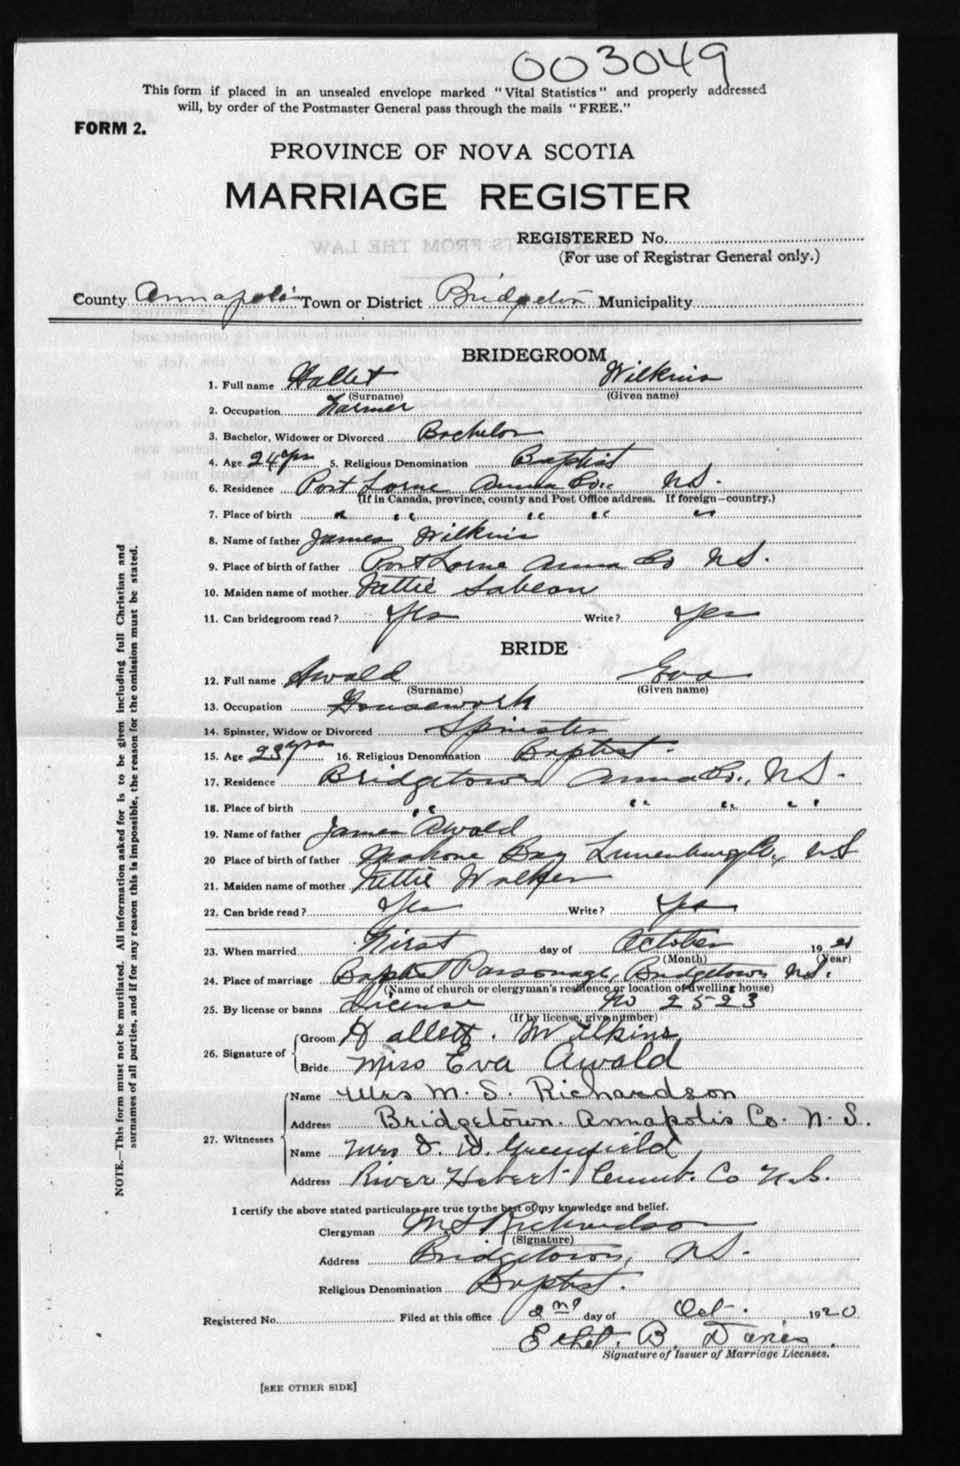 003049
This form if placed in an unsealed envelope marked "Vital Statistics" and properly addressed
will, by order of the Postmaster General pass through the mails "FREE."
FORM 2.
PROVINCE OF NOVA SCOTIA
MARRIAGE REGISTER
REGISTERED No.
(For use of Registrar General only.)
County Annapolis Town or District Bridgetown Municipality
BRIDEGROOM
1. Full name Hallet Wilkins
(Surname) (Given name)
2. Occupation Farmer
3. Bachelor, Widower or Divorced Bachelor
4. Age 24 yrs 5. Religious Denomination Baptist
6. Residence Port Lorne Anna Co. N.S.
(If in Canada, province, county and Post Office address. If foreign—country.)
7. Place of birth " " " " "
8. Name of father James Wilkins
9. Place of birth of father Port Lorne Anna Co N.S.
10. Maiden name of mother Nettie Sabean
11. Can bridegroom read? Yes Write? Yes
BRIDE
12. Full name Awald Eva
(Surname) (Given name)
13. Occupation Housework
14. Spinster, Widow or Divorced Spinster
15. Age 23 yrs 16. Religious Denomination Baptist.
17. Residence Bridgetown, Anna Co., N.S.
18. Place of birth " " " "
19. Name of father James Awald
20 Place of birth of father Mahone Bay Lunenburg Co., N.S
21. Maiden name of mother Nettie Walker
22. Can bride read? Yes Write? Yes
23. When married First day of October 19
(Month) (Year)
24. Place of marriage Baptist Parsonage, Bridgetown N.S.
(Name of church or clergyman's residence or location of dwelling house)
25. By license or banns License No 2523
(If by license, give number)
26. Signature of Groom Hallett. Wilkins
Bride Miss Eva Awald
27. Witnesses Name Mrs M. S. Richardson
Address Bridgetown. Annapolis Co. N. S.
Name Mrs J. D. Greenfield
Address River Hebert Cumb. Co N.S.
I certify the above stated particulars are true to the best of my knowledge and belief.
Clergyman M S Richardson
(Signature)
Address Bridgetown, N.S.
Religious Denomination Baptist.
Registered No. Filed at this office 2nd day of Oct. 1920
Ethel. B. Davies
Signature of Issuer of Marriage Licenses.
[SEE OTHER SIDE]
NOTE.—This form must not be mutilated. All informations asked for is to be given including full Christian and
surnames of all parties, and if for any reason this is impossible, the reason for the omission must be stated.